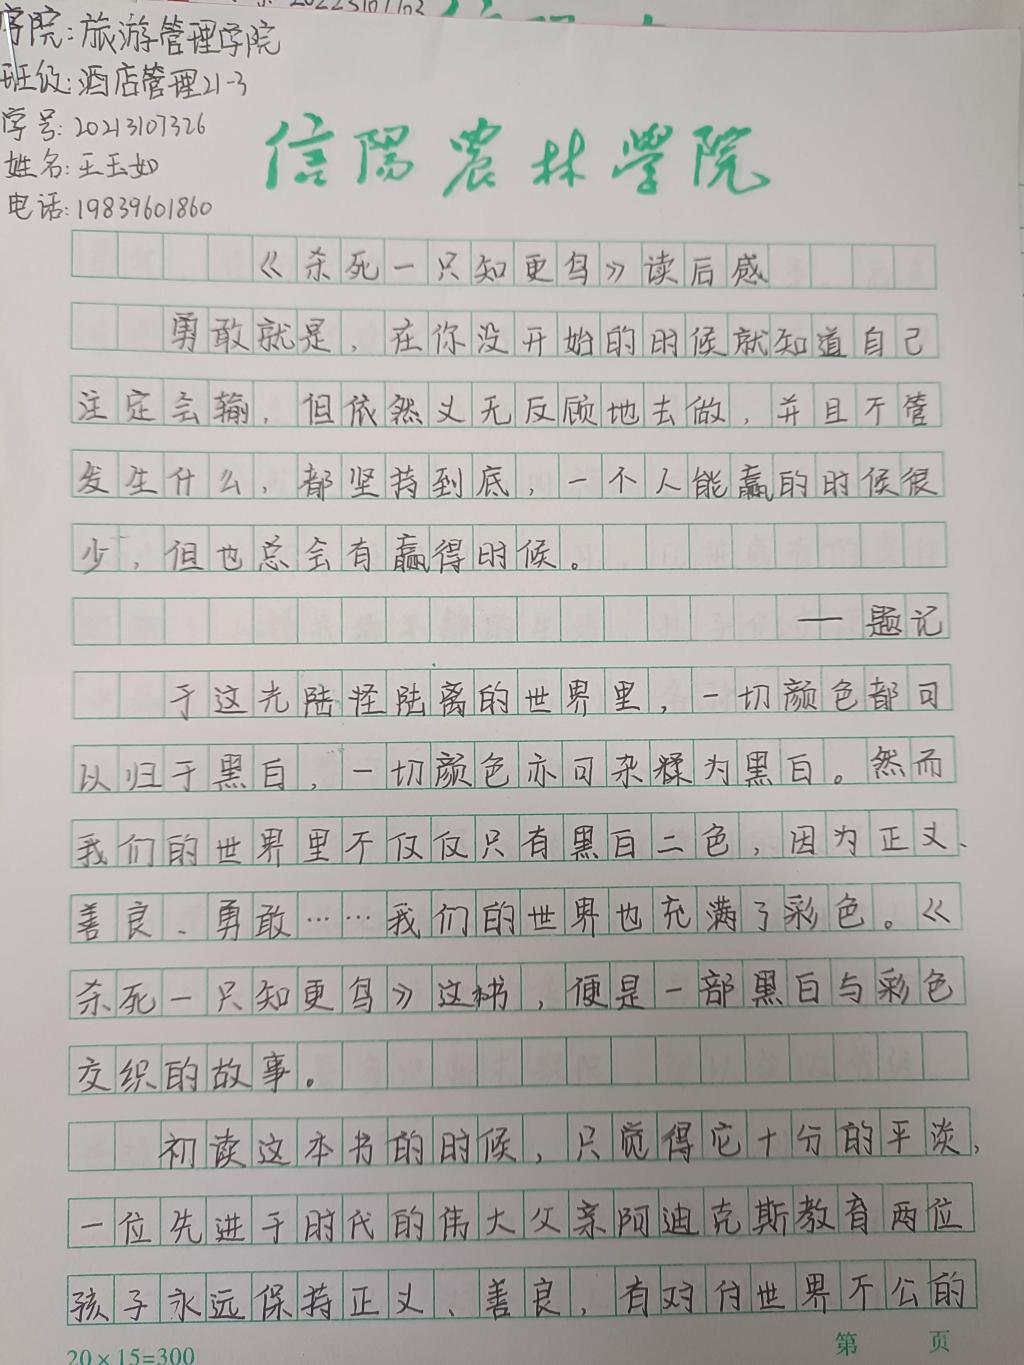 学院:旅游管理学院
班级:酒店管理21-3
学号:20213107326
姓名:王玉如
电话:19839601860
信陽農林學院
《杀死一只知更鸟》读后感
勇敢就是,在你没开始的时候就知道自己
注定会输,但依然义无反顾地去做,并且不管
发生什么,都坚持到底,一个人能赢的时候很
少,但也总会有赢得时候。
——题记
于这光陆怪陆离的世界里,一切颜色都可
以归于黑白,一切颜色亦可杂糅为黑白。然而
我们的世界里不仅仅只有黑白二色,因为正义、
善良、勇敢……我们的世界也充满了彩色。《
杀死一只知更鸟》这本书,便是一部黑白与彩色
交织的故事。
初读这本书的时候,只觉得它十分的平淡,
一位先进于时代的伟大父亲阿迪克斯教育两位
孩子永远保持正义、善良,有对付世界不公的
20×15=300
第 页